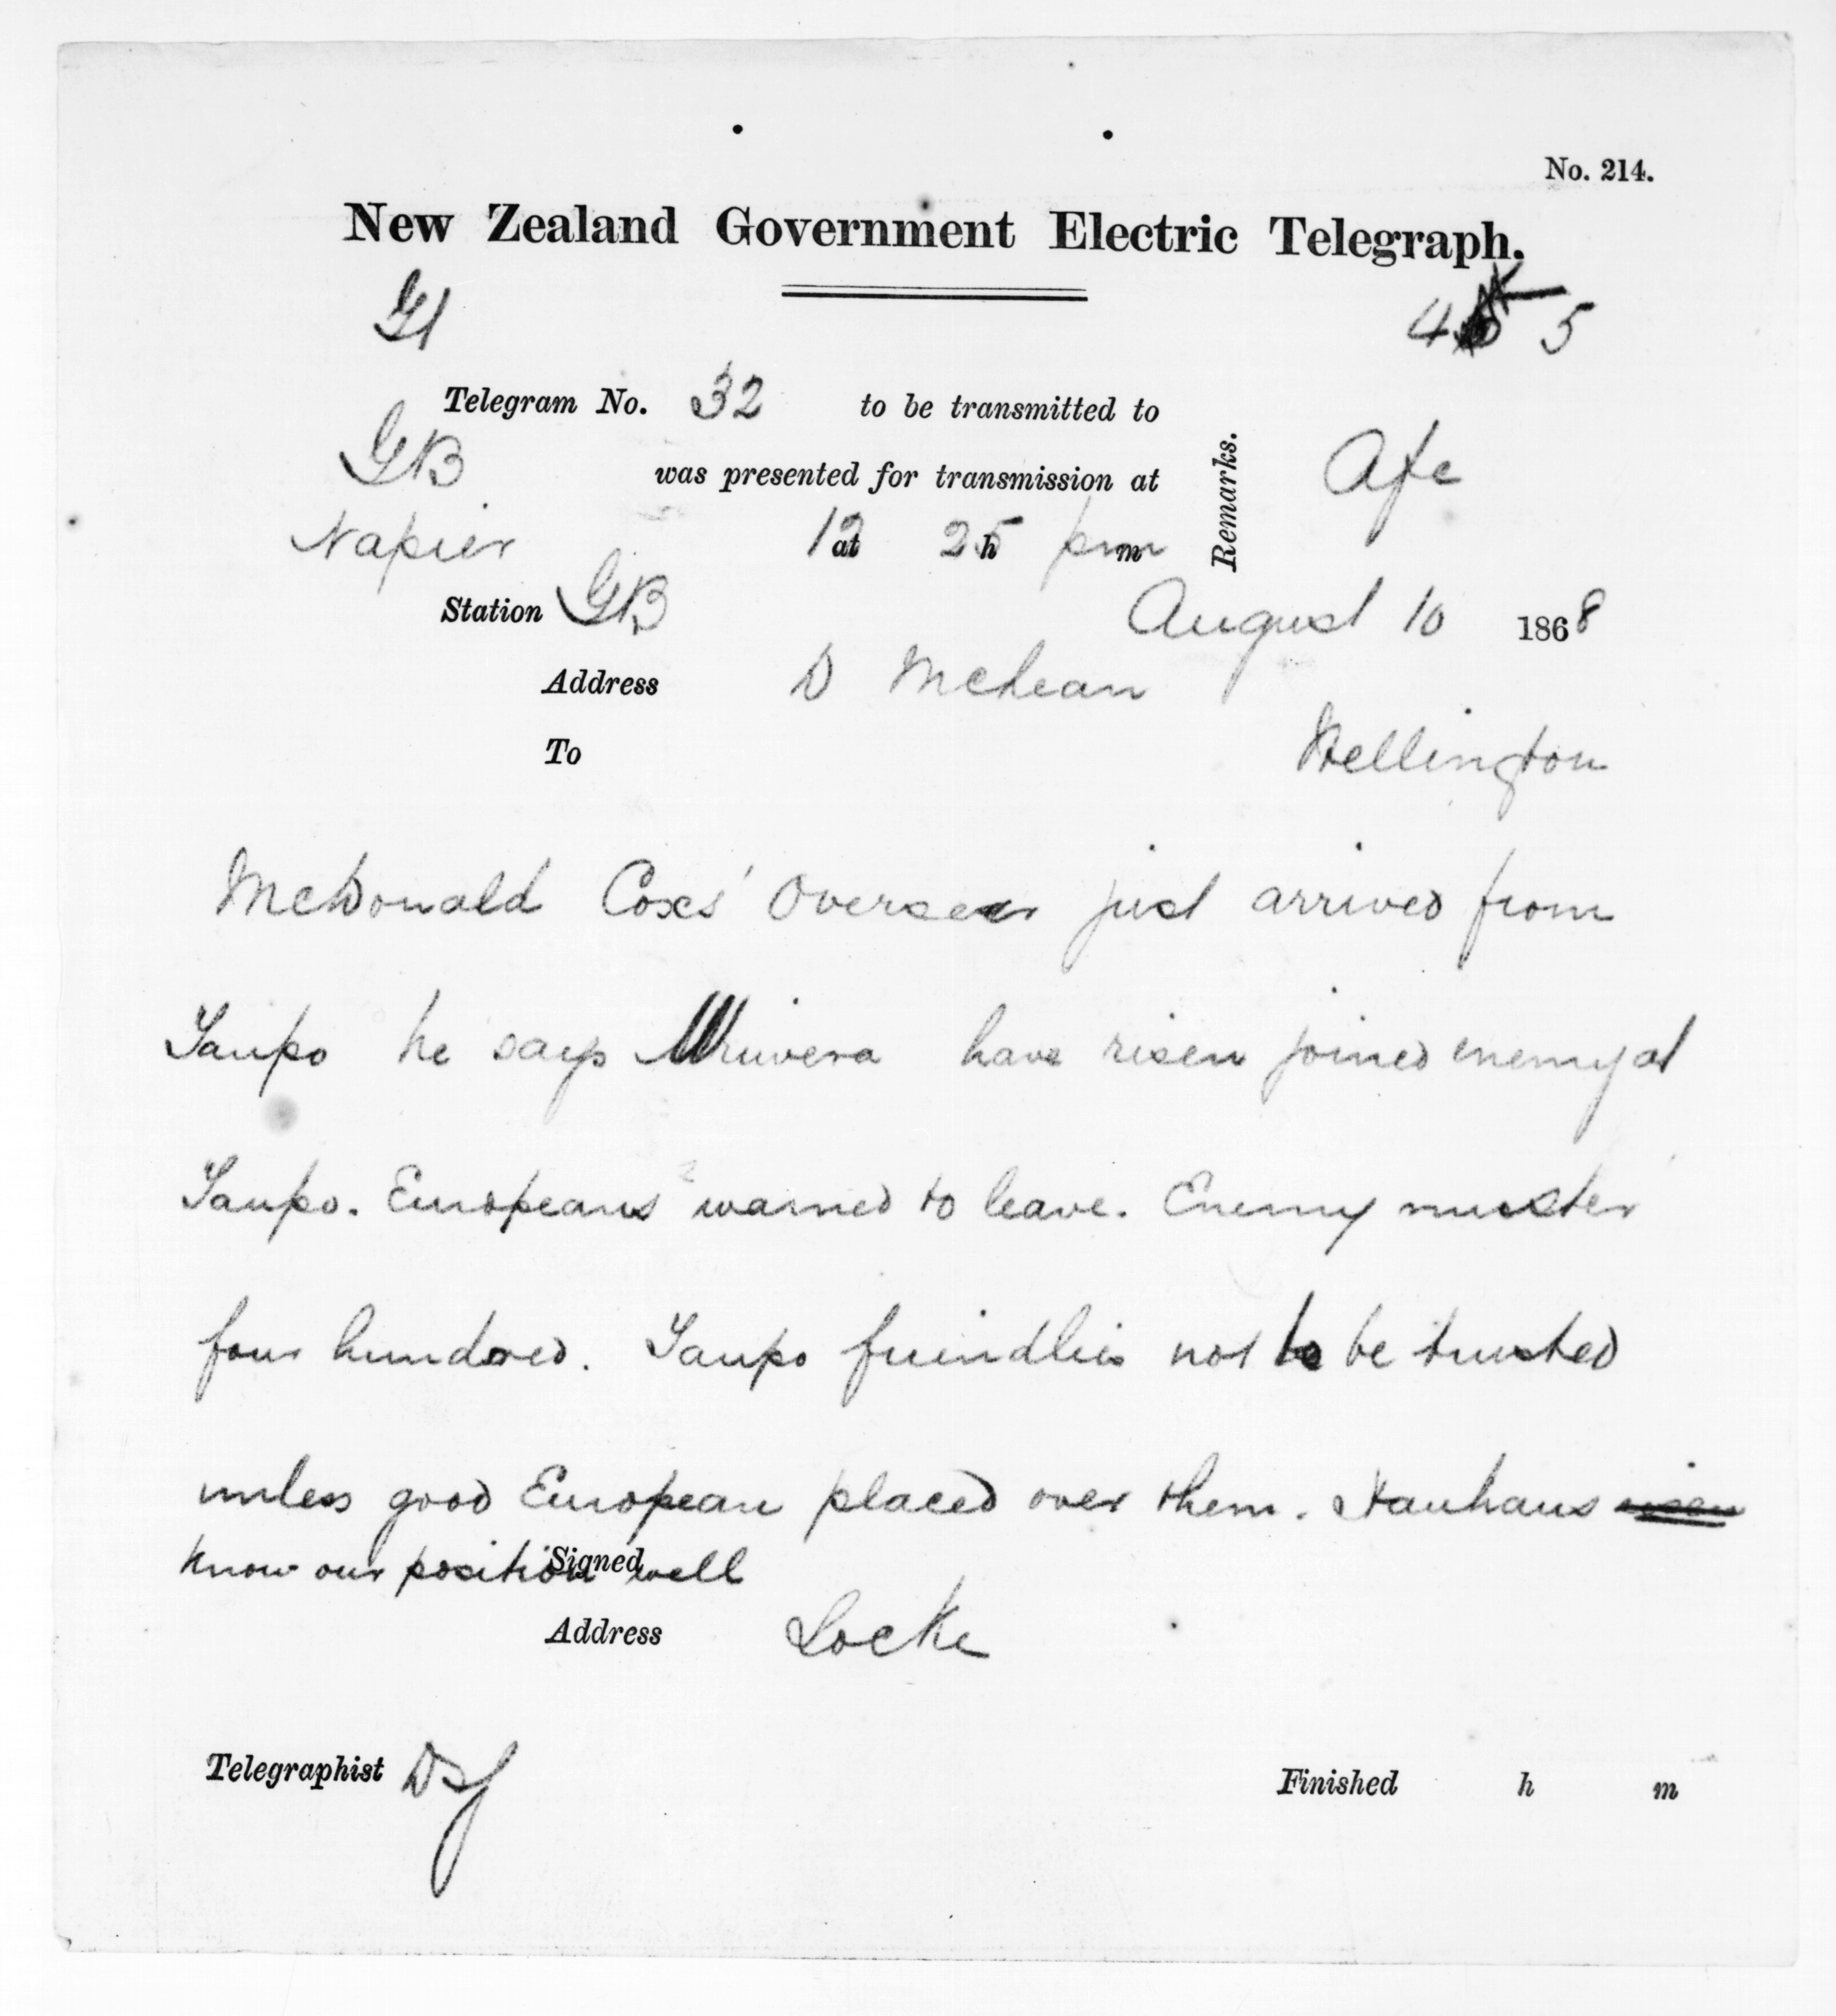 No. 214.
New Zealand Government Electric Telegraph.
4 5
Telegram No. 32 to be transmitted to
GB was presented for transmission at
Remarks.
Napier 12 at 25 h pm m
Station GB August 10 1868
Address D McLean
To Wellington
McDonald Coxs' Overseer just arrived from
Taupo he says have risen joined enemy at
Taupo. Europeans warned to leave. Enemy muster
four hundred. Taupo friendlies not to be trusted
unless good European placed over them. Hauhaus
know our position well
Signed
Address Locke
Telegraphist Finished h m